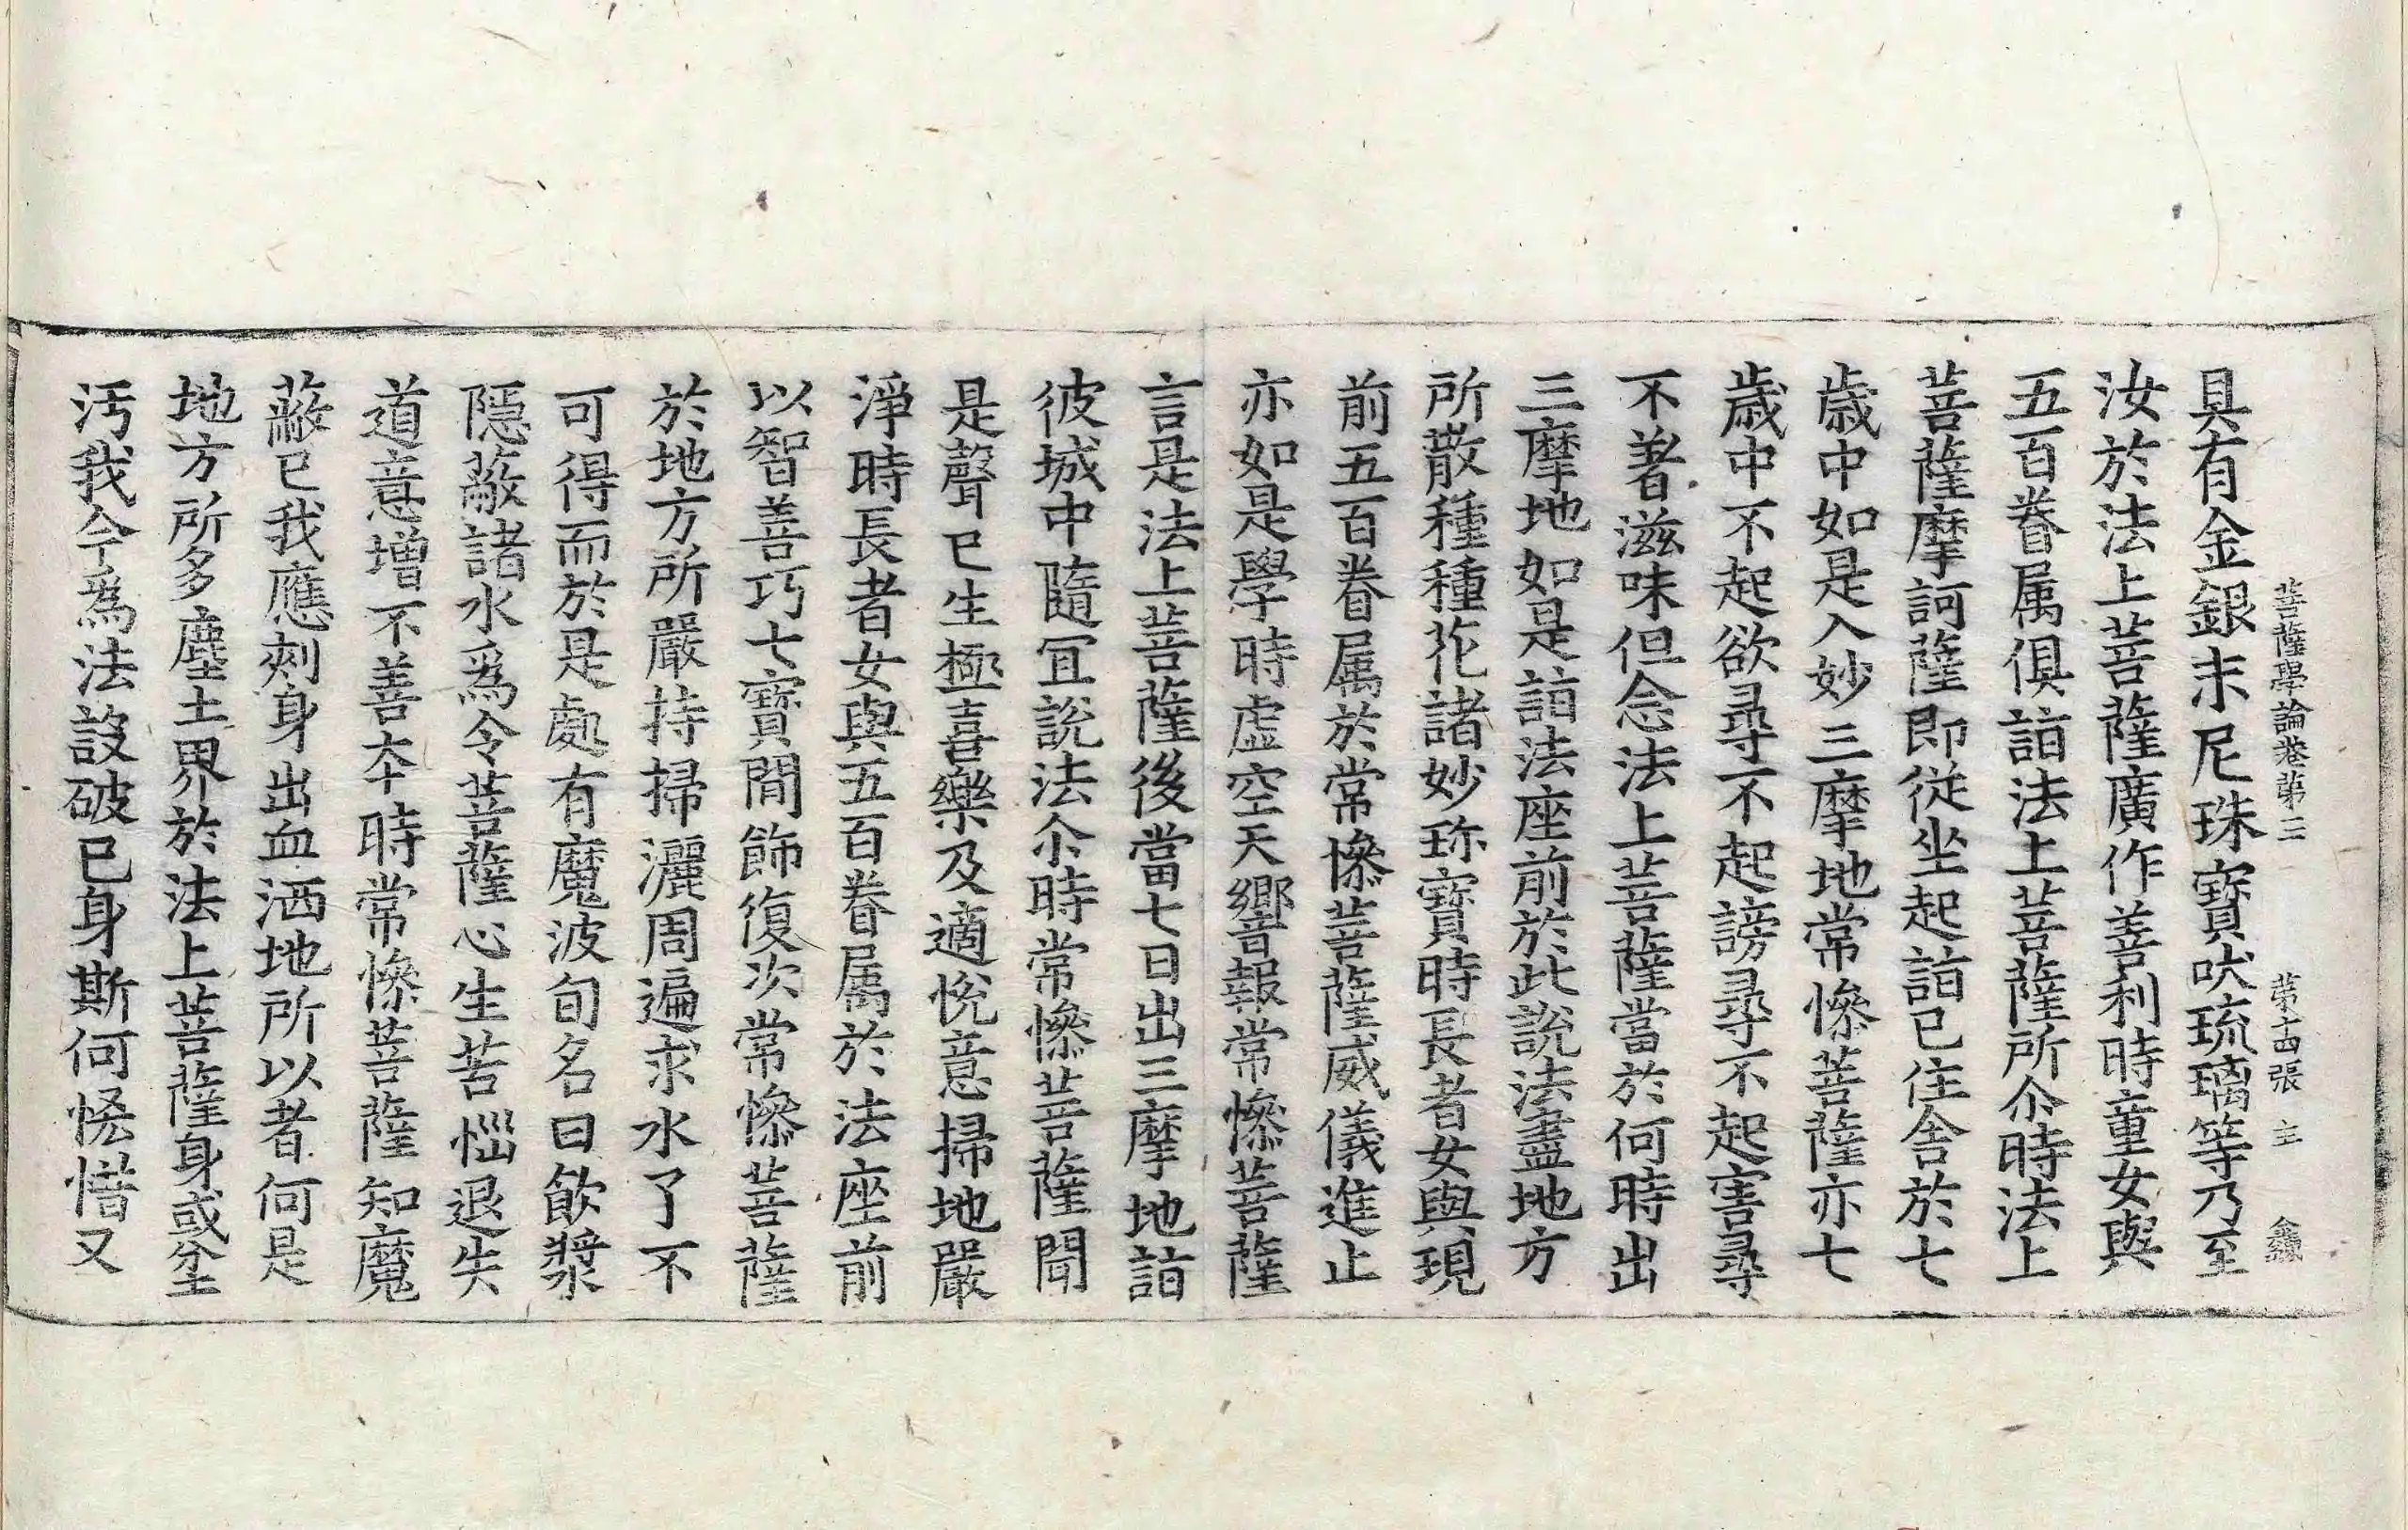 菩薩學論卷第三 第十四張 主
具有金銀末尼珠寶吠琉璃等乃至
汝於法上菩薩廣作善利時童女與
五百眷属俱詣法上菩薩所尒時法上
菩薩摩訶薩即從坐起詣已住舍於七
歳中如是入妙三摩地常慘菩薩亦七
歳中不起欲尋不起謗尋不起害尋
不著滋味但念法上菩薩當於何時出
三摩地如是詣法座前於此說法盡地方
所散種種花諸妙珎寶時長者女與現
前五百眷属於常慘菩薩威儀進止
亦如是學時虛空天響報常慘菩薩
言是法上菩薩後當七日出三摩地詣
彼城中隨冝說法尒時常慘菩薩聞
是聲已生極喜樂及適悅意掃地嚴
淨時長者女與五百眷属於法座前
以智善巧七寶閒飾復次常慘菩薩
於地方所嚴持掃灑周遍求水了不
可得而於是處有魔波旬名曰飮漿
隱蔽諸水爲令菩薩心生苦惱退失
道意增不善夲時常慘菩薩知魔
蔽已我應刾身出血洒地所以者何是
地方所多塵土界於法上菩薩身或坌
汚我今為法設破已身斯何悋惜又